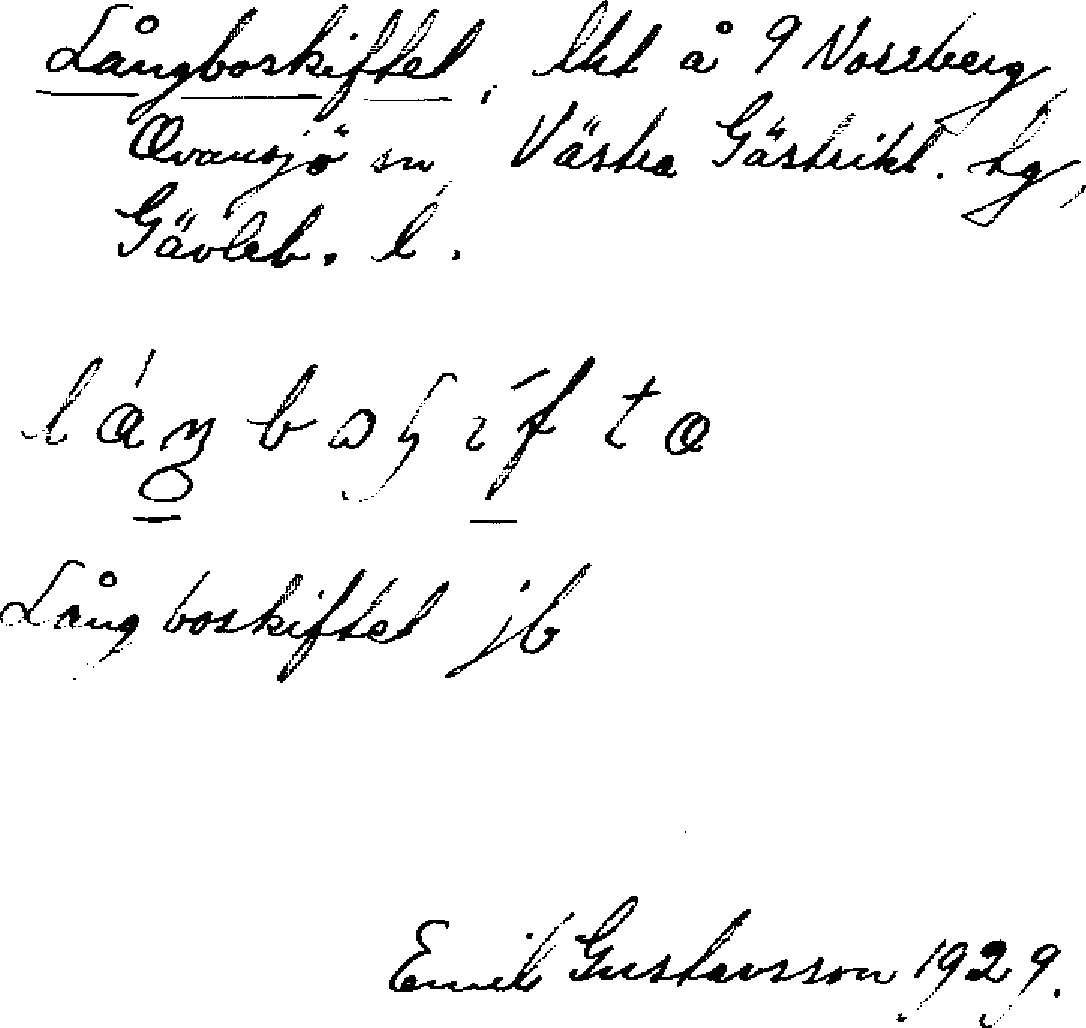 Långboskiftet, lht å 9 Norrberg
Ovansjö sn, Västra Gästrikl. tg,
Gävleb. l.
Långboskiftet jb
Emil Gustavsson 1929.